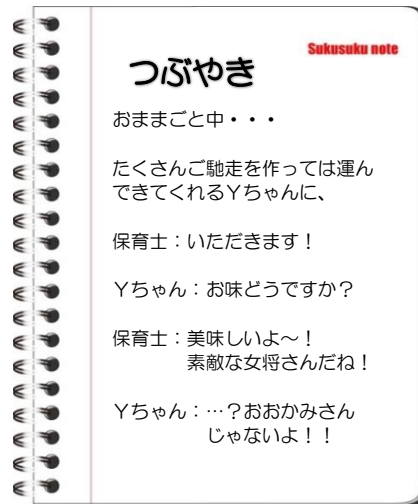 Sukusuku note
つぶやき
おままごと中・・・
たくさんご馳走を作っては運ん
できてくれるYちゃんに、
保育士：いただきます！
Yちゃん：お味どうですか？
保育士：美味しいよ～！
素敵な女将さんだね！
Yちゃん：…？おおかみさん
じゃないよ！！